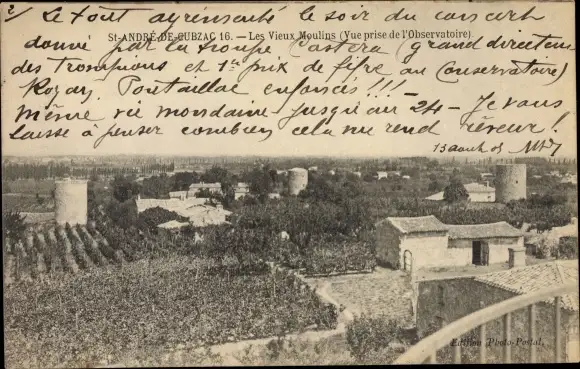 2/ Le tout agrémenté le soir du concert
St-ANDRÉ-DE-CUBZAC 16. — Les Vieux Moulins (Vue prise de l'Observatoire)
donné par la troupe Castéra (grand directeur
des trompions et 1er prix de fifre au Conservatoire)
Royan, Pontaillac enfoncés !!!
même vie mondaine jusqu'au 24 - Je vous
laisse à penser combien cela me rend rêveur !
13 août 05
Edition Photo-Postal.